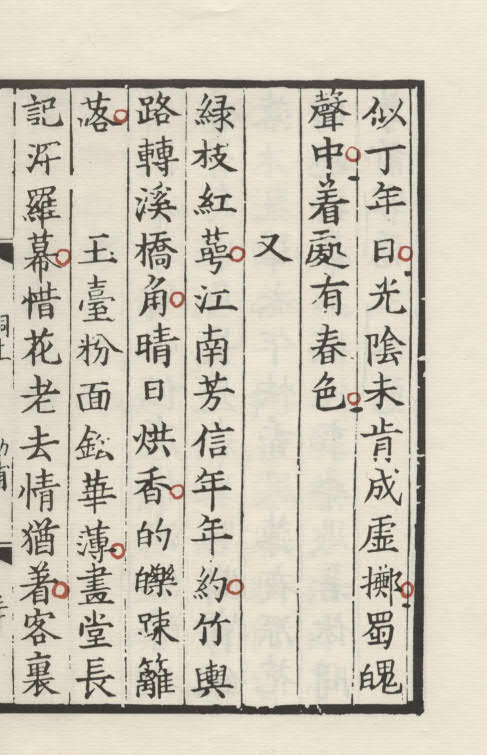 似丁年日光陰未肯成虛擲蜀魄
聲中着處有春色
又
綠枝紅萼江南芳信年年約竹輿
路轉溪橋角晴日烘香的皪踈籬
落　玉臺粉面鉛華薄畫堂長
記湥羅幕惜花老去情猶着客裏